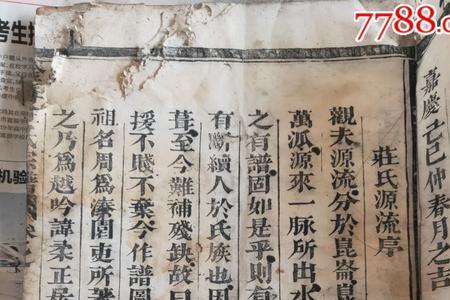 7788.com
考生
嘉慶己巳仲春月之吉
莊氏源流序
觀夫源流分於崑崙
萬派源來一脉所出水
之有譜固如是乎則
有斷續人於氏族也
葺至今難補殘缺故曰
援不賤不棄今作譜
祖名周為漆園吏所著
之乃為越吟諱柔正居